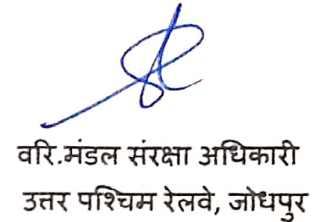 वरि.मंडल संरक्षा अधिकारी
उत्तर पश्चिम रेलवे, जोधपुर